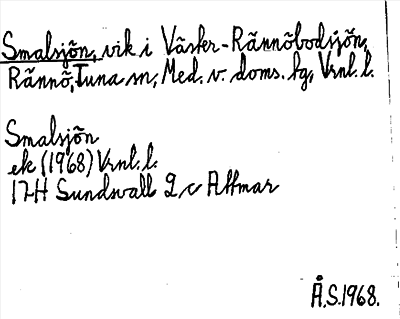 Smalsjön, vik i Väster-Rännöbodsjön,
Rännö, Tuna sn, Med. v. doms. tg, Vrnl. l.
Smalsjön
ek (1968) Vrnl. l.
17H Sundsvall 2, c Allmar
Å.S. 1968.